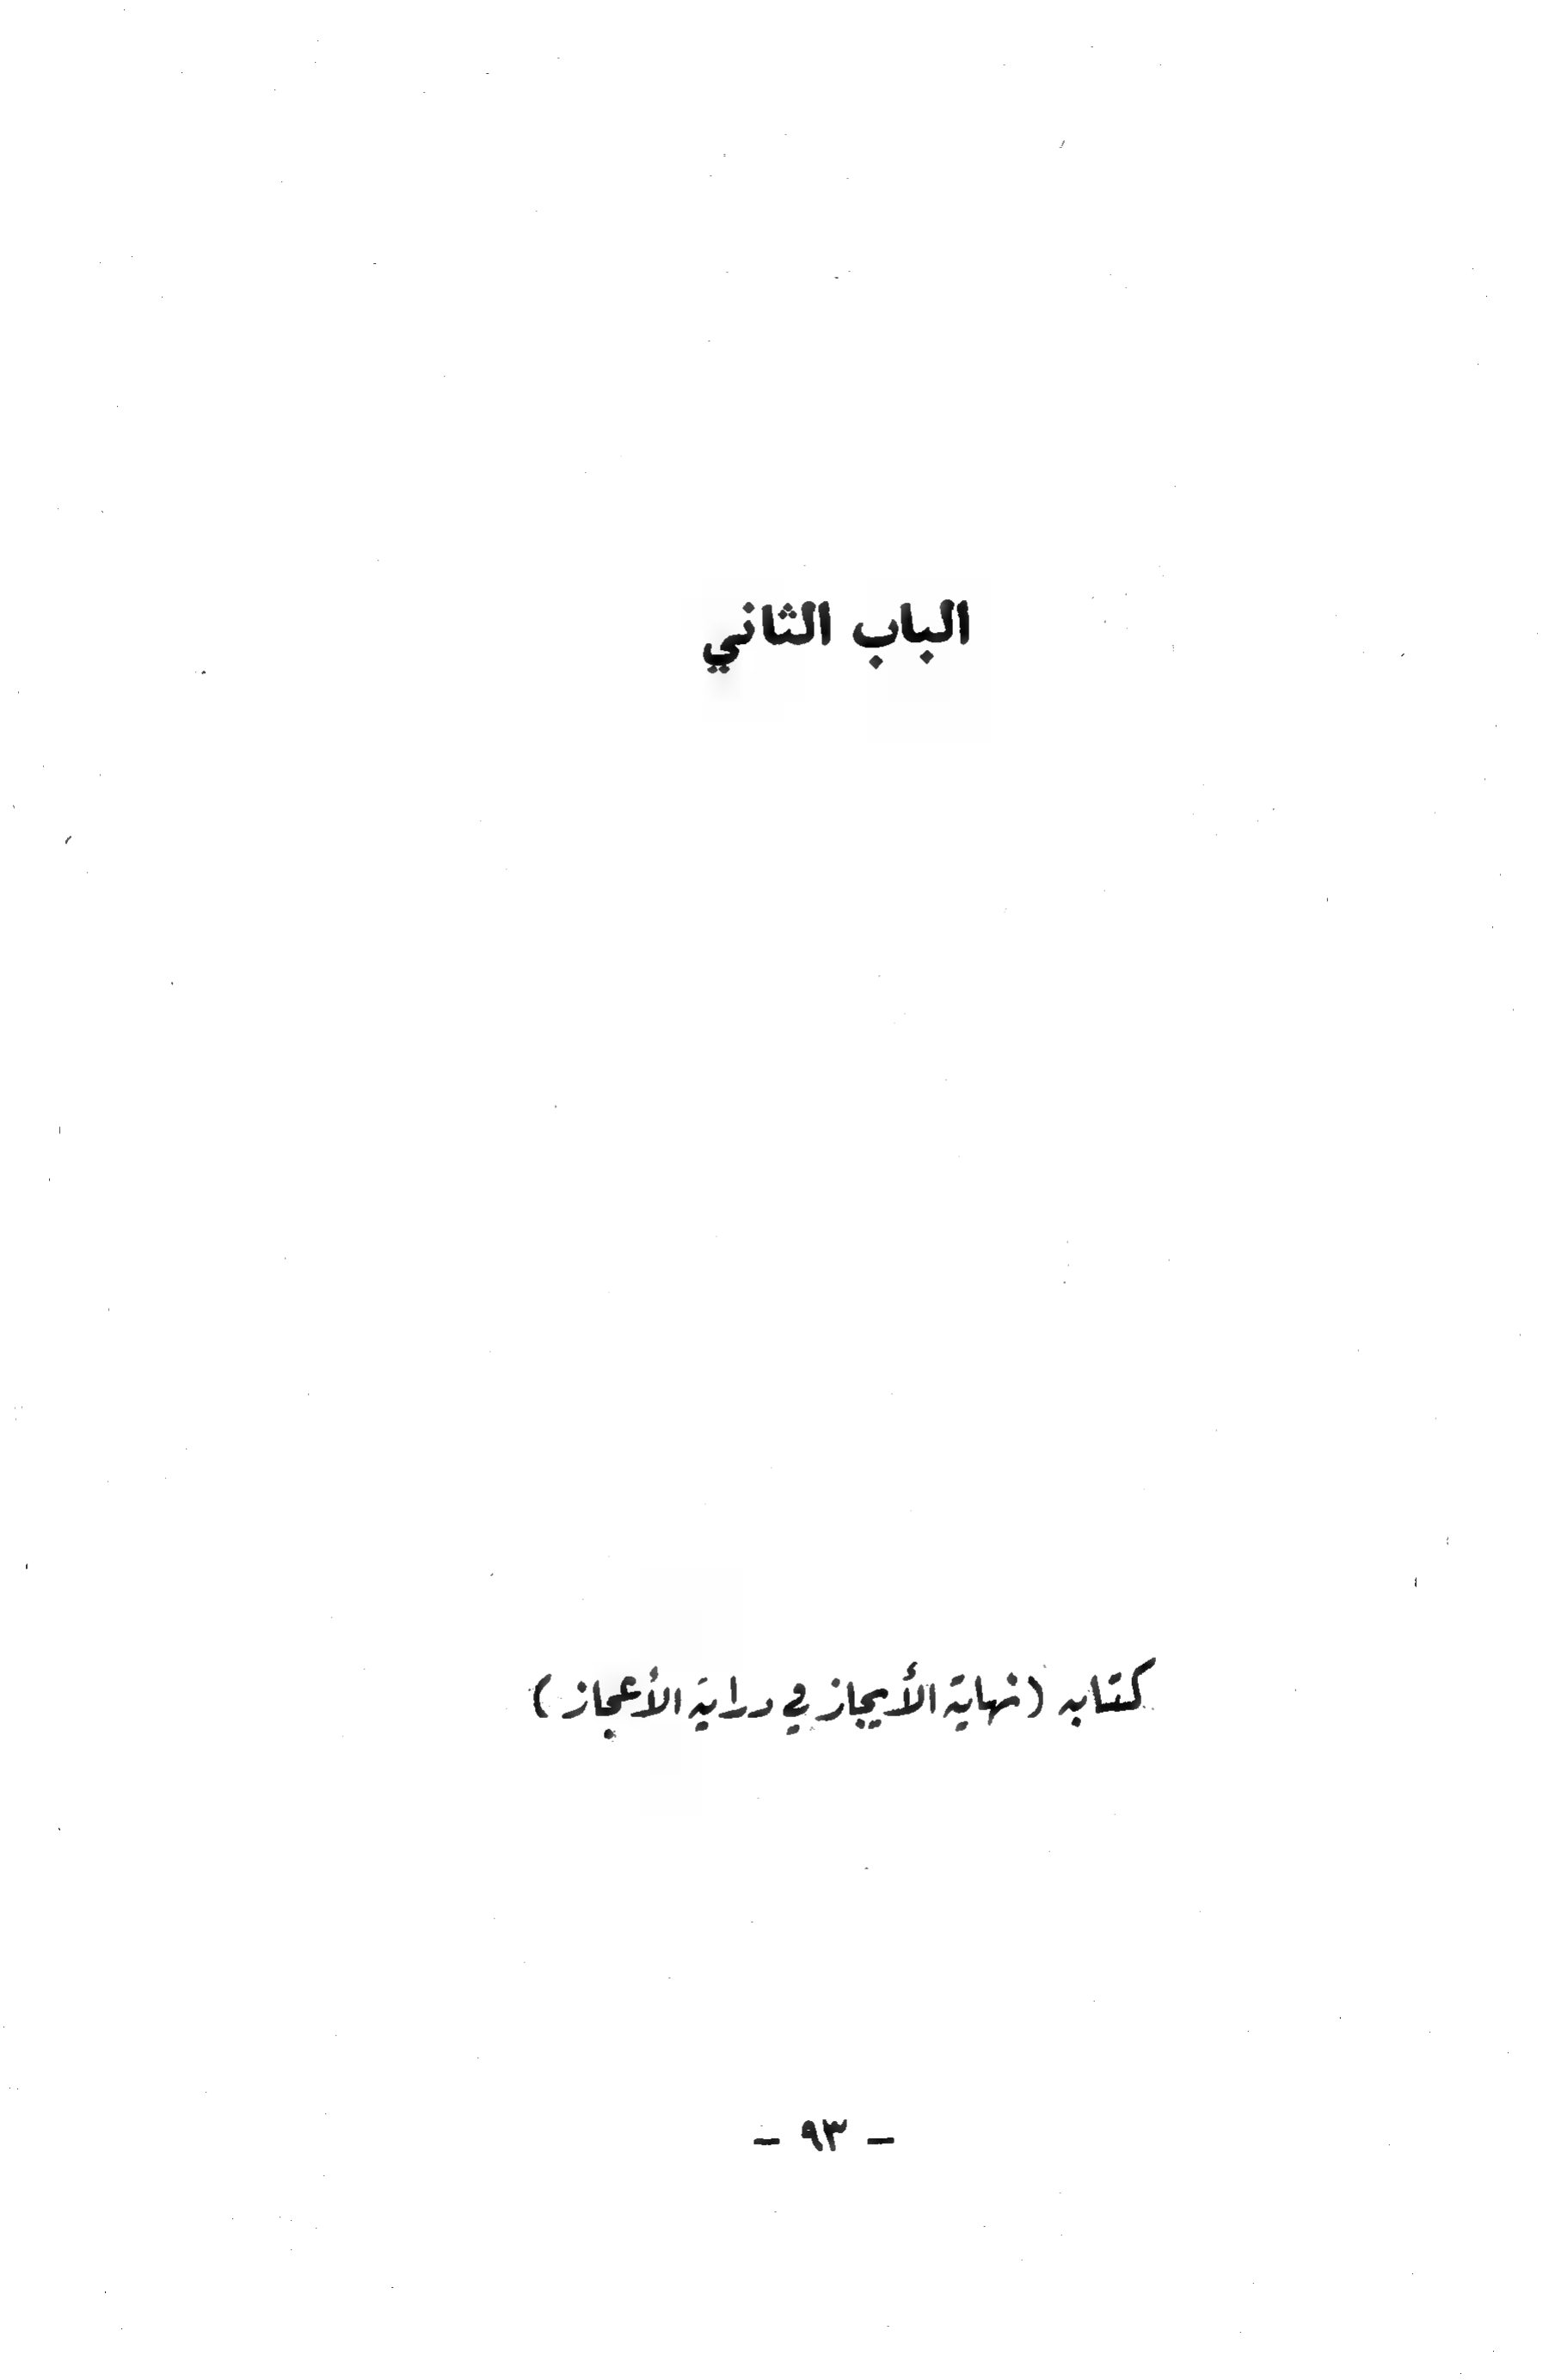 الباب الثاني
كتابه (نهاية الأيجاز في دراية الأعجاز)
- ٩٣ -